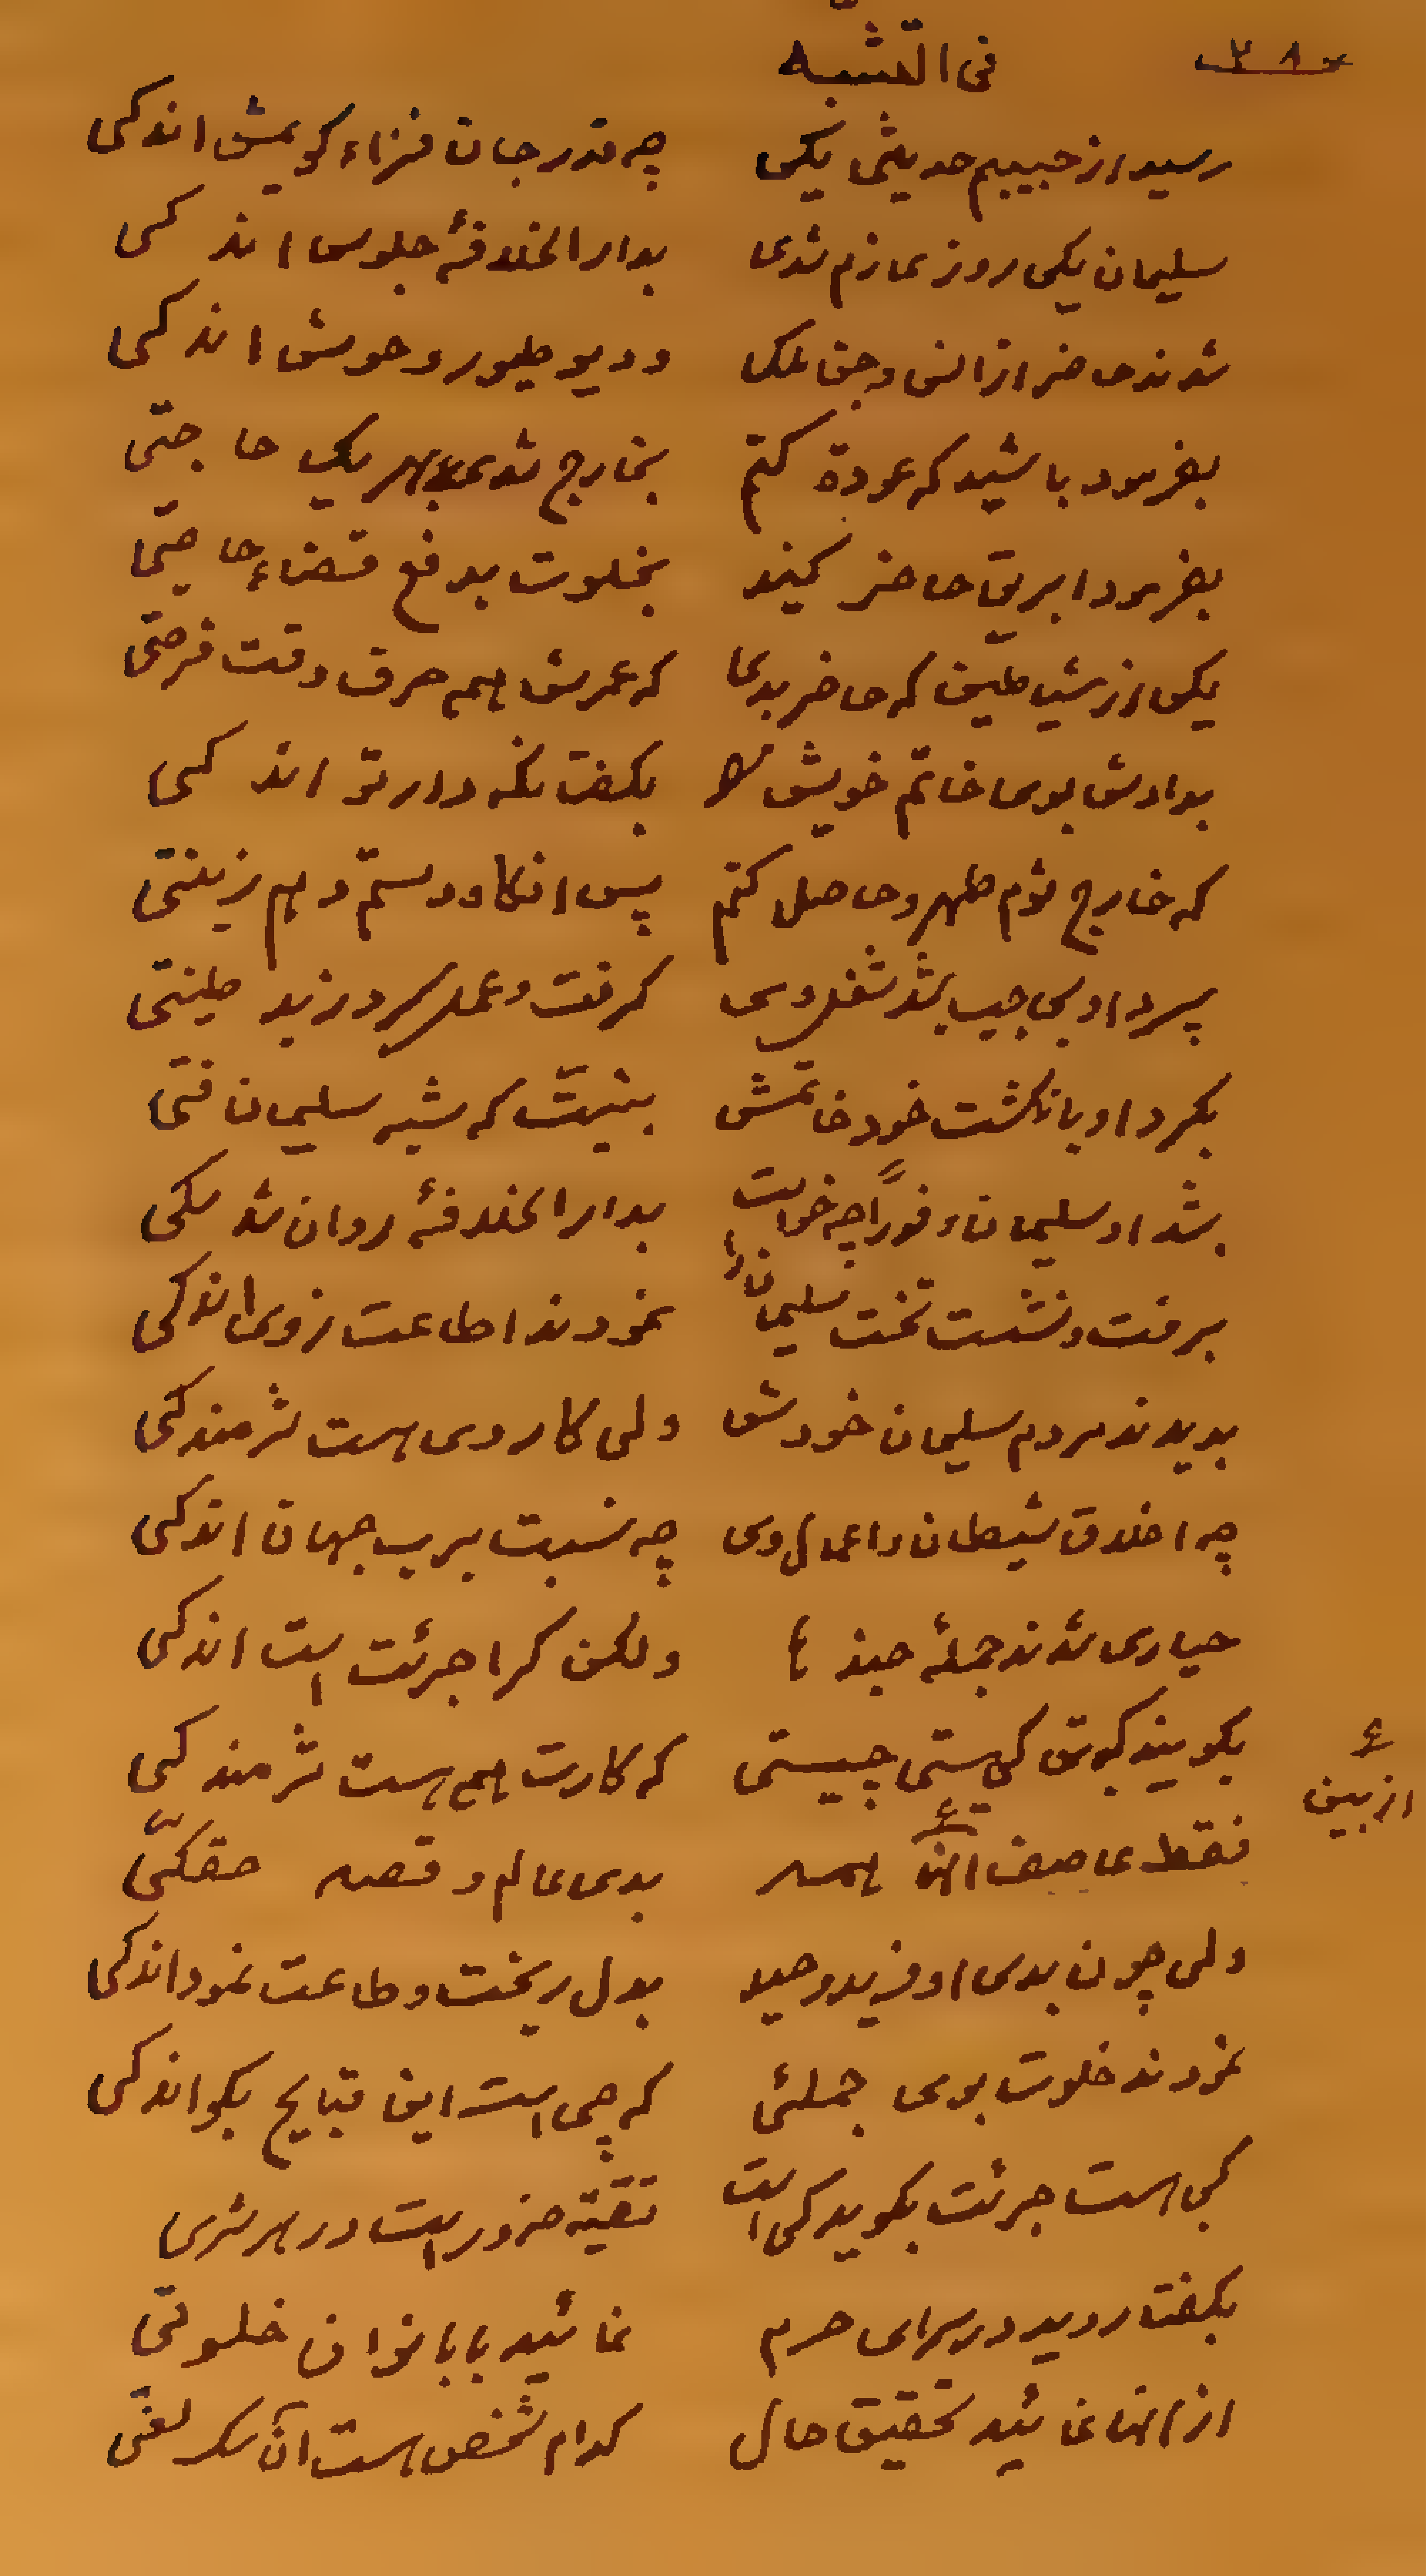 ۲۸ فی التّشبّه
رسید از حبیبم حدیثی یکی چه قدر جان فزاء گویمش اندکی
سلیمان یکی روز عازم شدی بدار الخلافهٔ جلوس اندکی
شدند حاضر از انس و جن ملک و دیو طیور و حوش اندکی
بفرمود باشید که عودة کنم بخارج شدی بهر یک حاجتی
بفرمود ابریق حاضر کنید بخلوت بدفع قضاء حاجتی
یکی از شیاطین که حاضر بدی که عمرش همه صرف وقت فرصتی
بدادش بوی خاتم خویش را بگفت نگه دار تو اندکی
که خارج شوم طهر و حاصل کنم پس انگاه و دستم دهم زینتی
سپرد او بی جیب بشد شغل وی گرفت و عمل کرد ز بد طینتی
بکرد او بانگشت خود خاتمش بنیّت که شبه سلیمان فتی
بشد او سلیمان و فوراً چه خواست بدار الخلافهٔ روان شد یکی
برفت و نشست تخت سلیمان را نمودند اطاعت ز وی اندکی
بدیدند مردم سلیمان خودش ولی کار وی هست شرمندکی
چه اخلاق شیطان و اعمال وی چه نسبت برب جهان اندکی
حیاری شدند جملهٔ جند ولکن کرا جرئت است اندکی
بگویند کوتو کیستی چیستی که کارت همه هست شرمندکی
فقط عاصف از بین همه بدی عالم و قصه حقکیّ
ولی چون بدی او فرید وحید بدل ریخت و طاعت نمود اندکی
نمودند خلوت بوی جملئی که چی است این قبایح بگو اندکی
کی است جرئت بگوید کی است تقیّه ضرور است در هر شری
بگفتا روید در سرای حرم نمائید با بانوان خلوتی
از انها نمائید تحقیق حال کدام شخص است آن